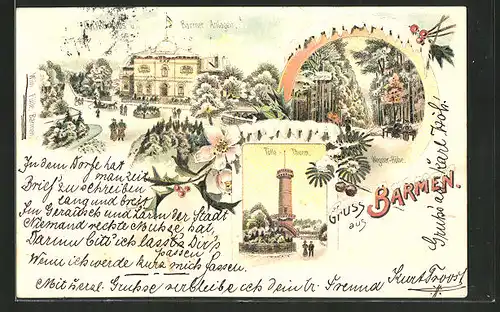 Barmer Anlagen.
Tölle - Thurm.
Wagner-Höhe.
GRUSS
aus
BARMEN.
In dem Dorfe hat
man zeit
Brief zu schreiben
lang und breit
Im Geräusch und Lärm der Stadt
Niemand rechte Muhse hat,
Darum bitt' ich lass Dir's
passen
Wenn ich werde kurz mich fassen.
Mit herzl. Gruhse verbleibe ich dein tr. Freund
Kurt Troost